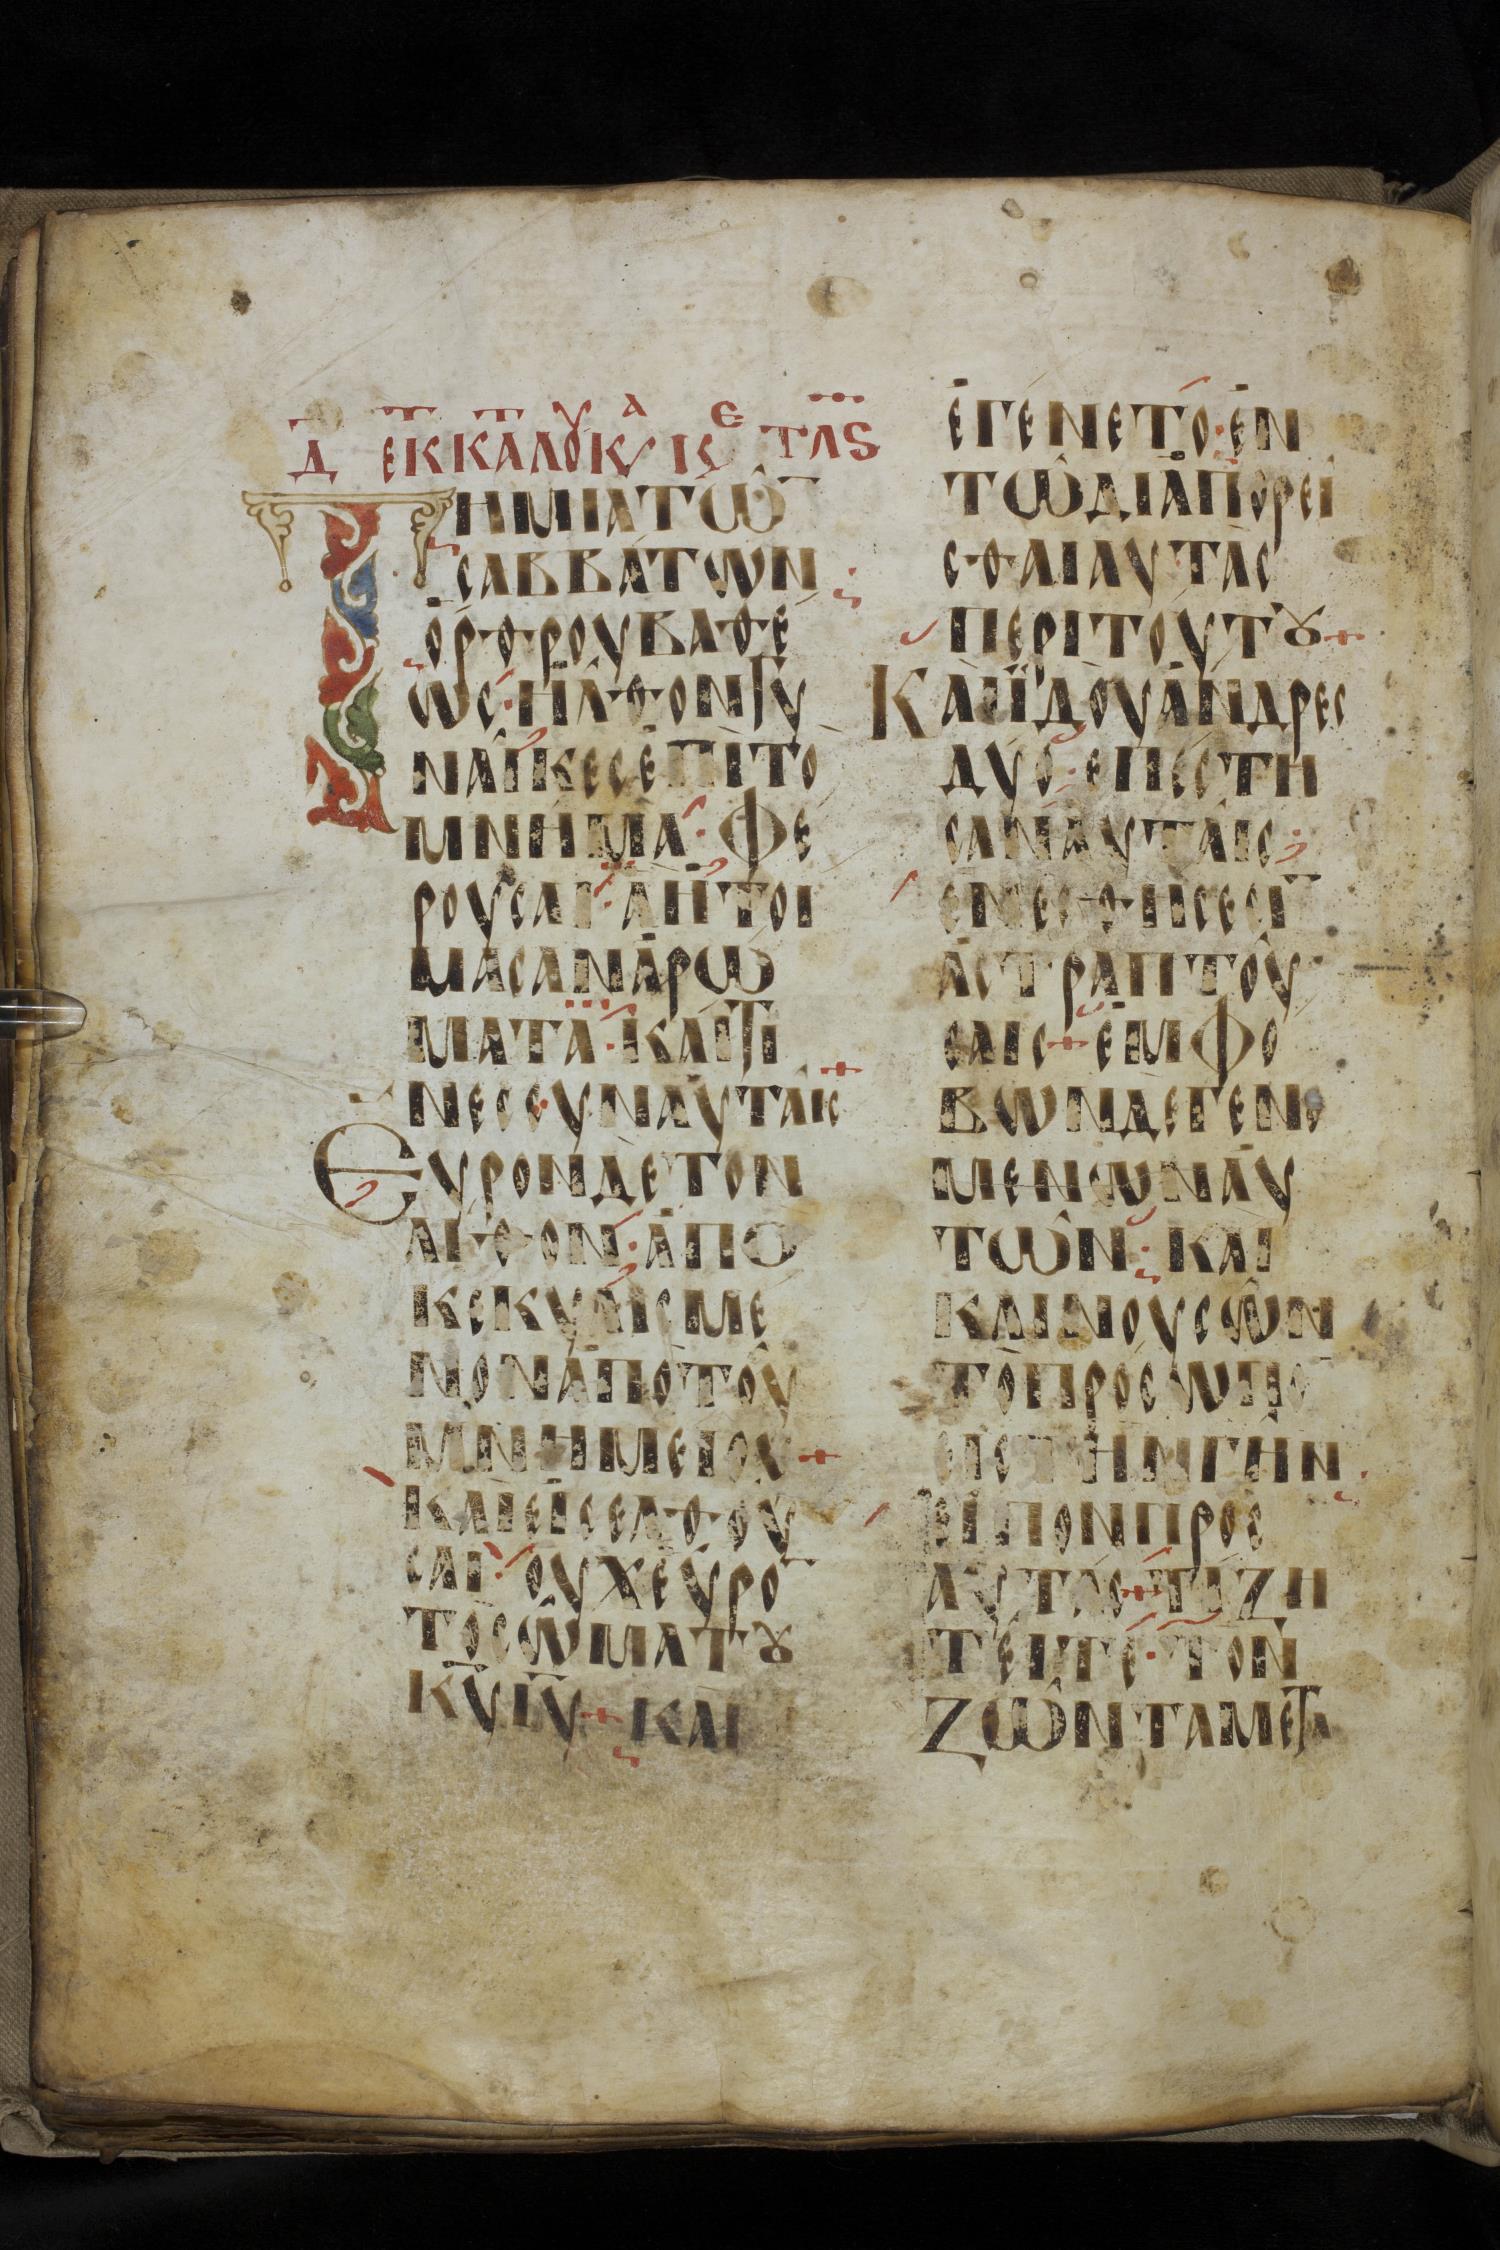 Δ ΕΚ Κ̅Α̅ ΛΟΥΚ Κε ΤΛϚ
ΤΗ ΜΙΑ ΤΩ̅
ΣΑΒΒΑΤΩΝ
ΟΡΘΡΟΥ ΒΑΘΕ
ΩΣ· ΗΛΘΟΝ ΓΥ
ΝΑΙΚΕΣ ΕΠΙ ΤΟ
ΜΝΗΜΑ· ΦΕ
ΡΟΥΣΑΙ· Α ΗΤΟΙ
ΜΑΣΑΝ ΑΡΩ
ΜΑΤΑ· ΚΑΙ ΤΙ
ΝΕΣ ΣΥΝ ΑΥΤΑΙΣ+
ΕΥΡΟΝ ΔΕ ΤΟΝ
ΛΙΘΟΝ· ΑΠΟ
ΚΕΚΥΛΙΣΜΕ
ΝΟΝ ΑΠΟ ΤΟΥ
ΜΝΗΜΕΙΟΥ+
ΚΑΙ ΕΙΣΕΛΘΟΥ
ΣΑΙ· ΟΥΧ ΕΥΡΟ̅
ΤΟ ΣΩΜΑ ΤȢ
Κ̅Υ̅ Ι̅Υ̅+ ΚΑΙ
ΕΓΕΝΕΤΟ· ΕΝ
ΤΩ ΔΙΑΠΟΡΕΙ
ΣΘΑΙ ΑΥΤΑΣ
ΠΕΡΙ ΤΟΥΤȢ+
ΚΑΙ ΪΔΟΥ ΑΝΔΡΕΣ
ΔΥΟ· ΕΠΕΣΤΗ
ΣΑΝ ΑΥΤΑΙΣ·
ΕΝ ΕΣΘΗΣΕΣΙ̅
ΑΣΤΡΑΠΤΟΥ
ΣΑΙΣ+ ΕΜΦΟ
ΒΩΝ ΔΕ ΓΕΝΟ
ΜΕΝΩΝ ΑΥ
ΤΩΝ· ΚΑΙ
ΚΛΙΝΟΥΣΩΝ
ΤΟ ΠΡΟΣΩΠΟ̅
ΕΙΣ ΤΗΝ ΓΗΝ·
ΕΙΠΟΝ ΠΡΟΣ
ΑΥΤΑΣ+ ΤΙ ΖΗ
ΤΕΙΤΕ· ΤΟΝ
ΖΩΝΤΑ ΜΕΤΑ